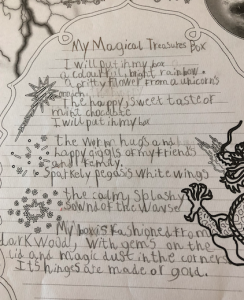 My Magical Treasures Box
I will put in my box
a colourful, bright, rainbow.
a pritty flower from a unicorn's
The happy, sweet taste of
mint chocolate
I will put in my box
the warm hugs and
happy giggls of my friends
and family.
Sparkely pegasis white wings
the calm, splashy
sound of the waves
My box is fashioned from
dark wood, with gems on the
lid and magic dust in the corners
Its hinges are made of gold.